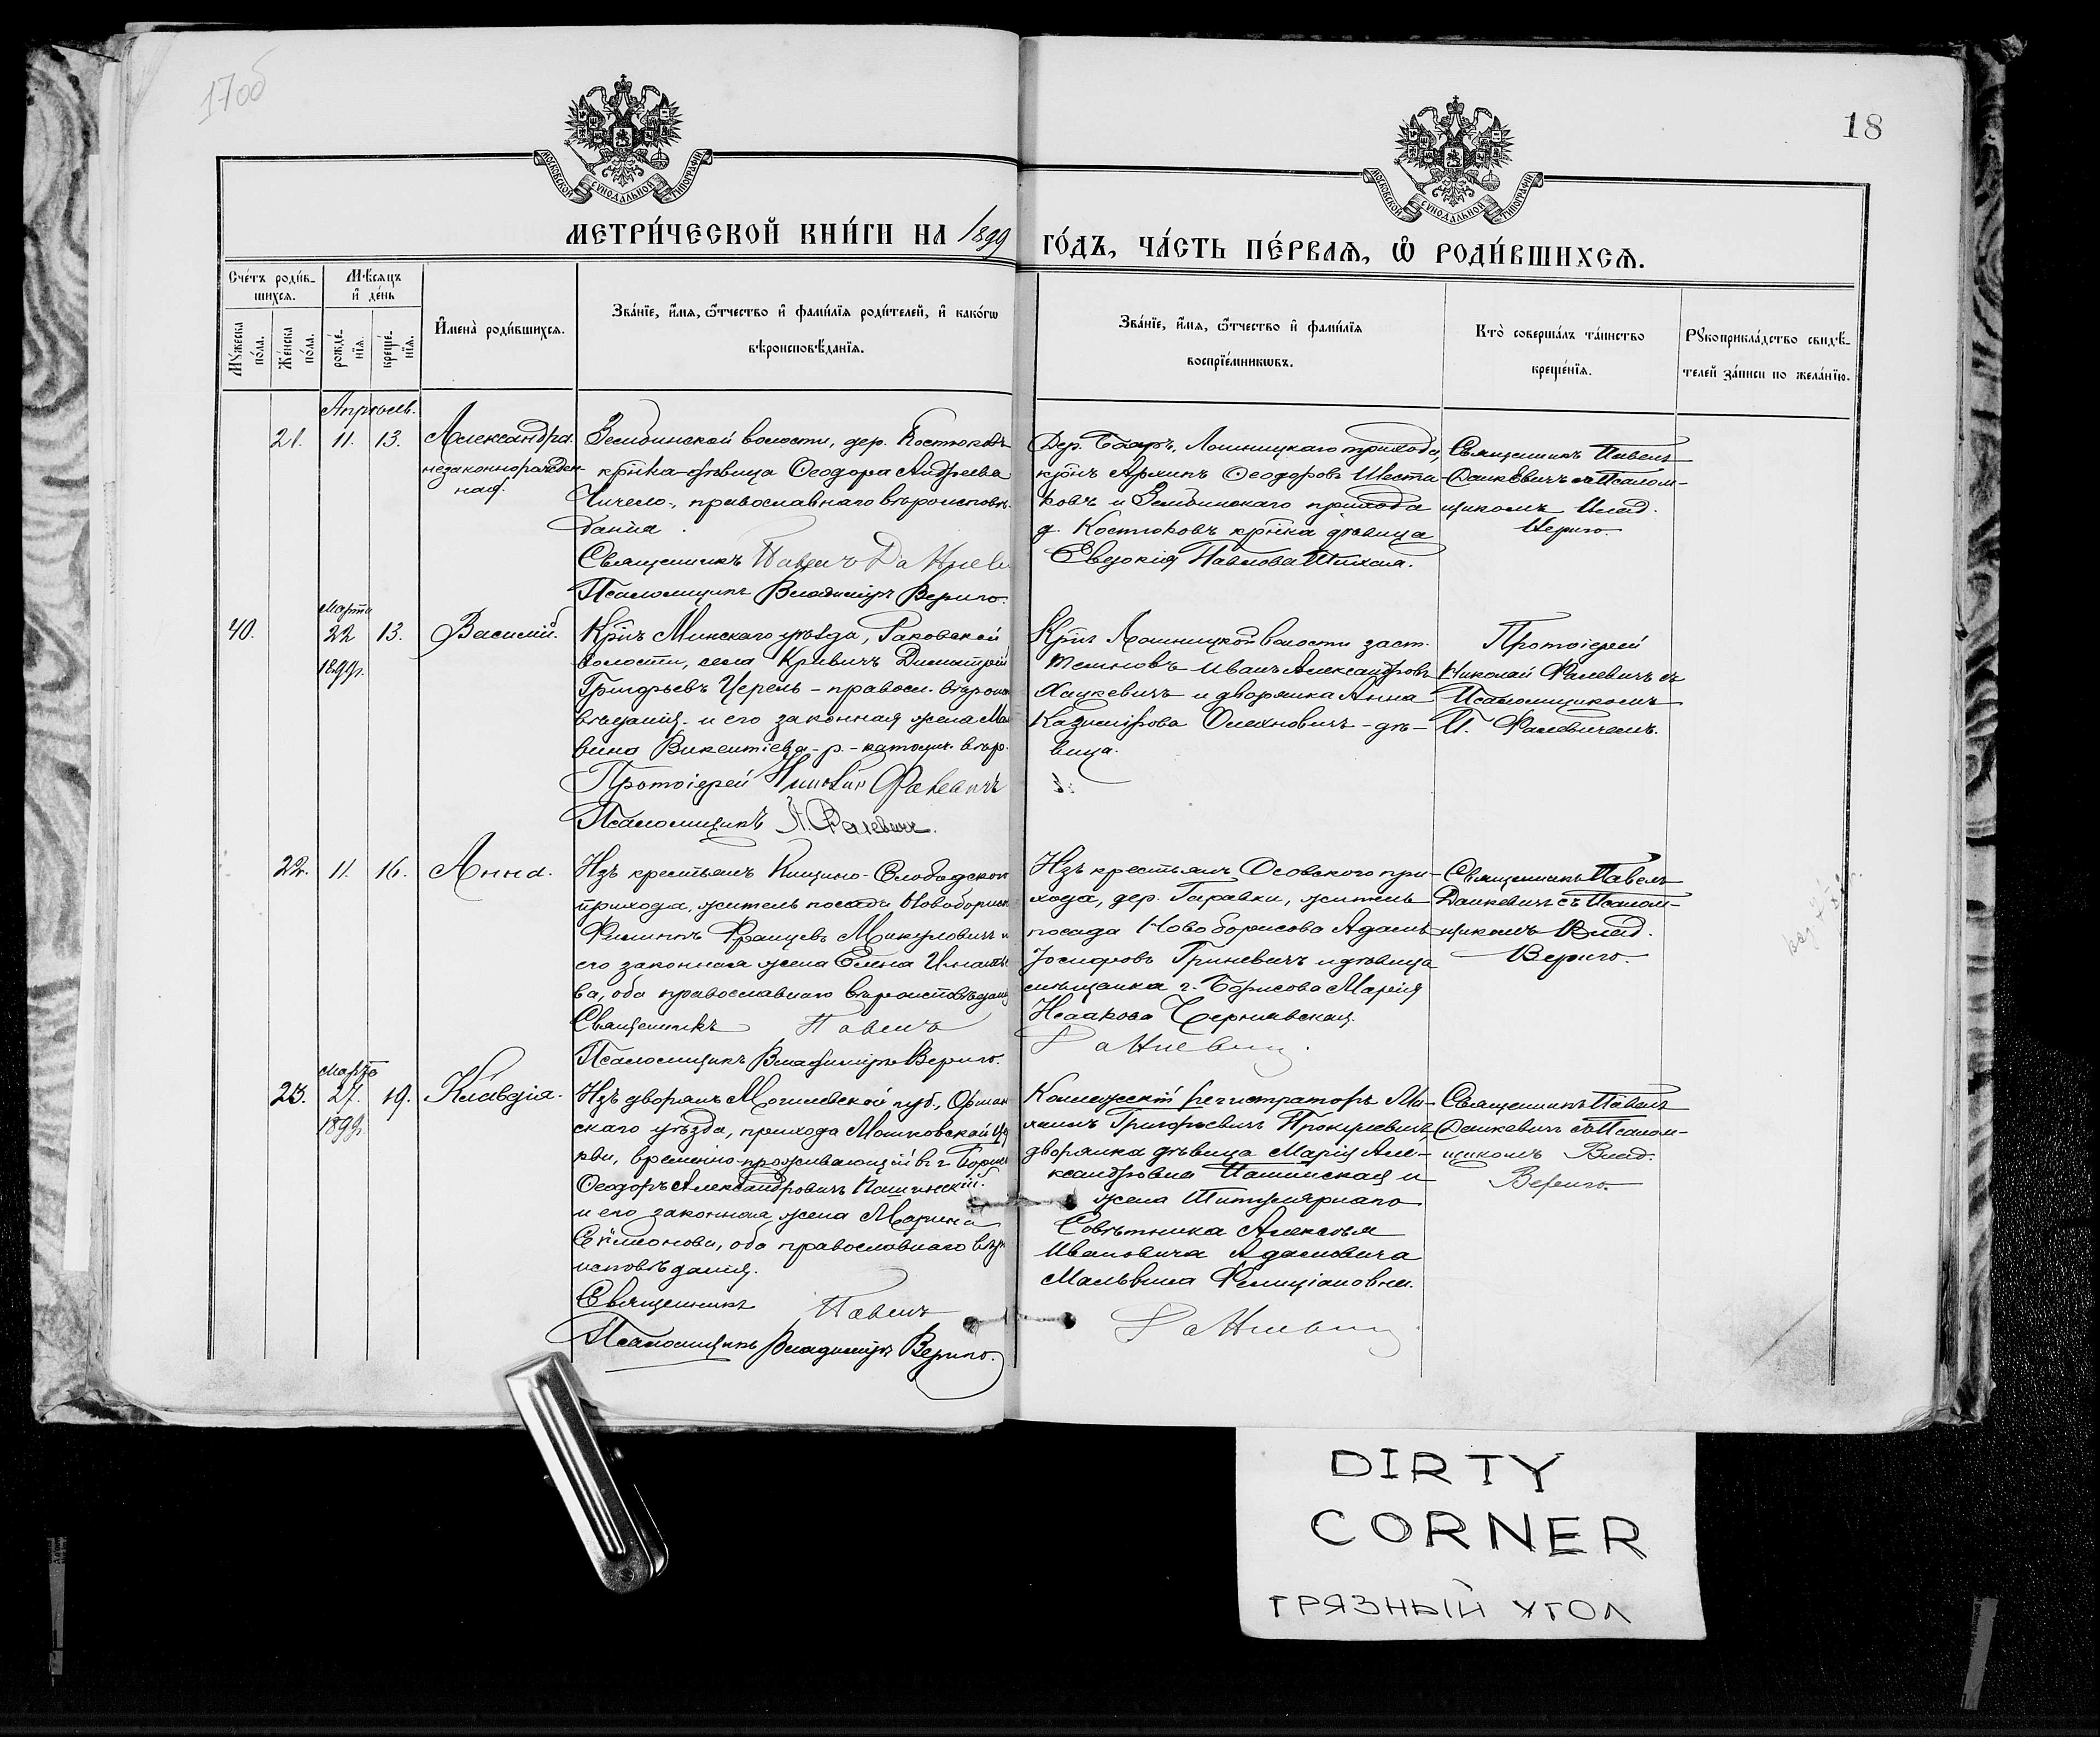 17об
18
МОСКОВСКОЙ СУНОДАЛЬНОЙ ТИПОГРАФІИ
МОСКОВСКОЙ СУНОДАЛЬНОЙ ТИПОГРАФІИ
МЕТРИ́ЧЕСКОЙ КНИ́ГИ НА 1899 ГО́ДЪ, ЧА́СТЬ ПЕ́РВАѦ, Ѡ҆ РОДИ́ВШИХСѦ.
Сче́тъ роди́в-
шихсѧ.
Мѣ́сѧцъ
и҆ де́нь
Мꙋ́жеска
по́ла.
Же́нска
по́ла.
рожде́-
нїѧ.
креще́-
нїѧ.
И҆мена̀ роди́вшихсѧ.
Зва́нїе, и҆́мѧ, ѻ҆́тчество и҆ фами́лїѧ роди́телей, и҆ како́гѡ
вѣроисповѣ́данїѧ.
Зва́нїе, и҆́мѧ, ѻ҆́тчество и҆ фами́лїѧ
воспрїе́мникѡвъ.
Кто̀ соверша́лъ та́инство
креще́нїѧ.
Рꙋкоприкла́дство свидѣ́-
телей за́писи по жела́нїю.
Апрѣль.
21. 11. 13. Александра
незаконнорожден-
ная.
Зембинской волости, дер. Костюковъ
кр̃нка-дѣвица Ѳеодора Андреева
Чичело, православнаго вѣроисповѣ-
данія.
Священникъ Павелъ Данкев
Псаломщикъ Владиміръ Вериго.
Дер. Лошницкаго прихода,
кр̃нъ Архипъ Ѳеодоровъ Шеста-
ковъ и Зембинскаго прихода
д. Костюковъ кр̃нка дѣвица
Евдокія Павлова
Священникъ Павелъ
Данкевичъ съ Псалом-
щикомъ Влад.
Вериго.
Марта
40. 22 13. Василій.
1899г.
Кр̃нъ Минскаго уѣзда, Раковской
волости, села Кривичъ Димитрій
Григорьевъ Церень - правосл. вѣроис
вѣданія и его законная жена Мал
вина Викентіева - р.-католич. вѣро.
Протоіерей Николай Фалевичъ
Псаломщикъ Фалевичъ.
Кр̃нъ Лошницкой волости заст.
Иванъ Александровъ
Хацкевичъ и дворянка Анна
Казимірова Олехновичъ - дѣ-
вица.
Протоіерей
Николай Фалевичъ съ
Псаломщикомъ
Фалевичемъ.
22. 11. 16. Анна.
Изъ крестьянъ Кищино-Слободского
прихода, житель посада Новоборис
Филиппъ Францевъ Микуловичъ и
его законная жена Елена Игнать
ва, оба православнаго вѣроисповѣданія
Священникъ Павелъ
Псаломщикъ Владиміръ Вериго.
Изъ крестьянъ Осовского при-
хода, дер. Гаравки, житель
посада Новоборисова Адамъ
Іосифовъ Гриневичъ и дѣвица
мѣщанка г. Борисова Марія
Исаакова Чернявская.
Данкевич
Священникъ Павелъ
Данкевичъ съ Псалом-
щикомъ Влад.
Вериго.
Марта
23. 27. 19. Клавдія.
1899г.
Изъ дворянъ Могилевской губ., Оршан
скаго уѣзда, прихода Машковской цер
кви, временно-проживающій въ г. Борис
Ѳеодоръ Александровичъ Пашинскій.
и его законная жена Марина
Симонова, оба православнаго вѣро
исповѣданія.
Священникъ Павелъ
Псаломщикъ Владиміръ Вериго.
Коллежскій регистраторъ Ми-
хаилъ Григорьевичъ Прокулевичъ,
дворянка дѣвица Марія Але-
ксандровна Пашинская и
жена Титулярнаго
Совѣтника Алексѣя
Ивановича Адамовича
Мальвина Фелиціановна.
Данкевич
Священникъ Павелъ
Данкевичъ съ Псалом-
щикомъ Влад.
Вериго.
DIRTY
CORNER
ГРЯЗНЫЙ УГОЛ